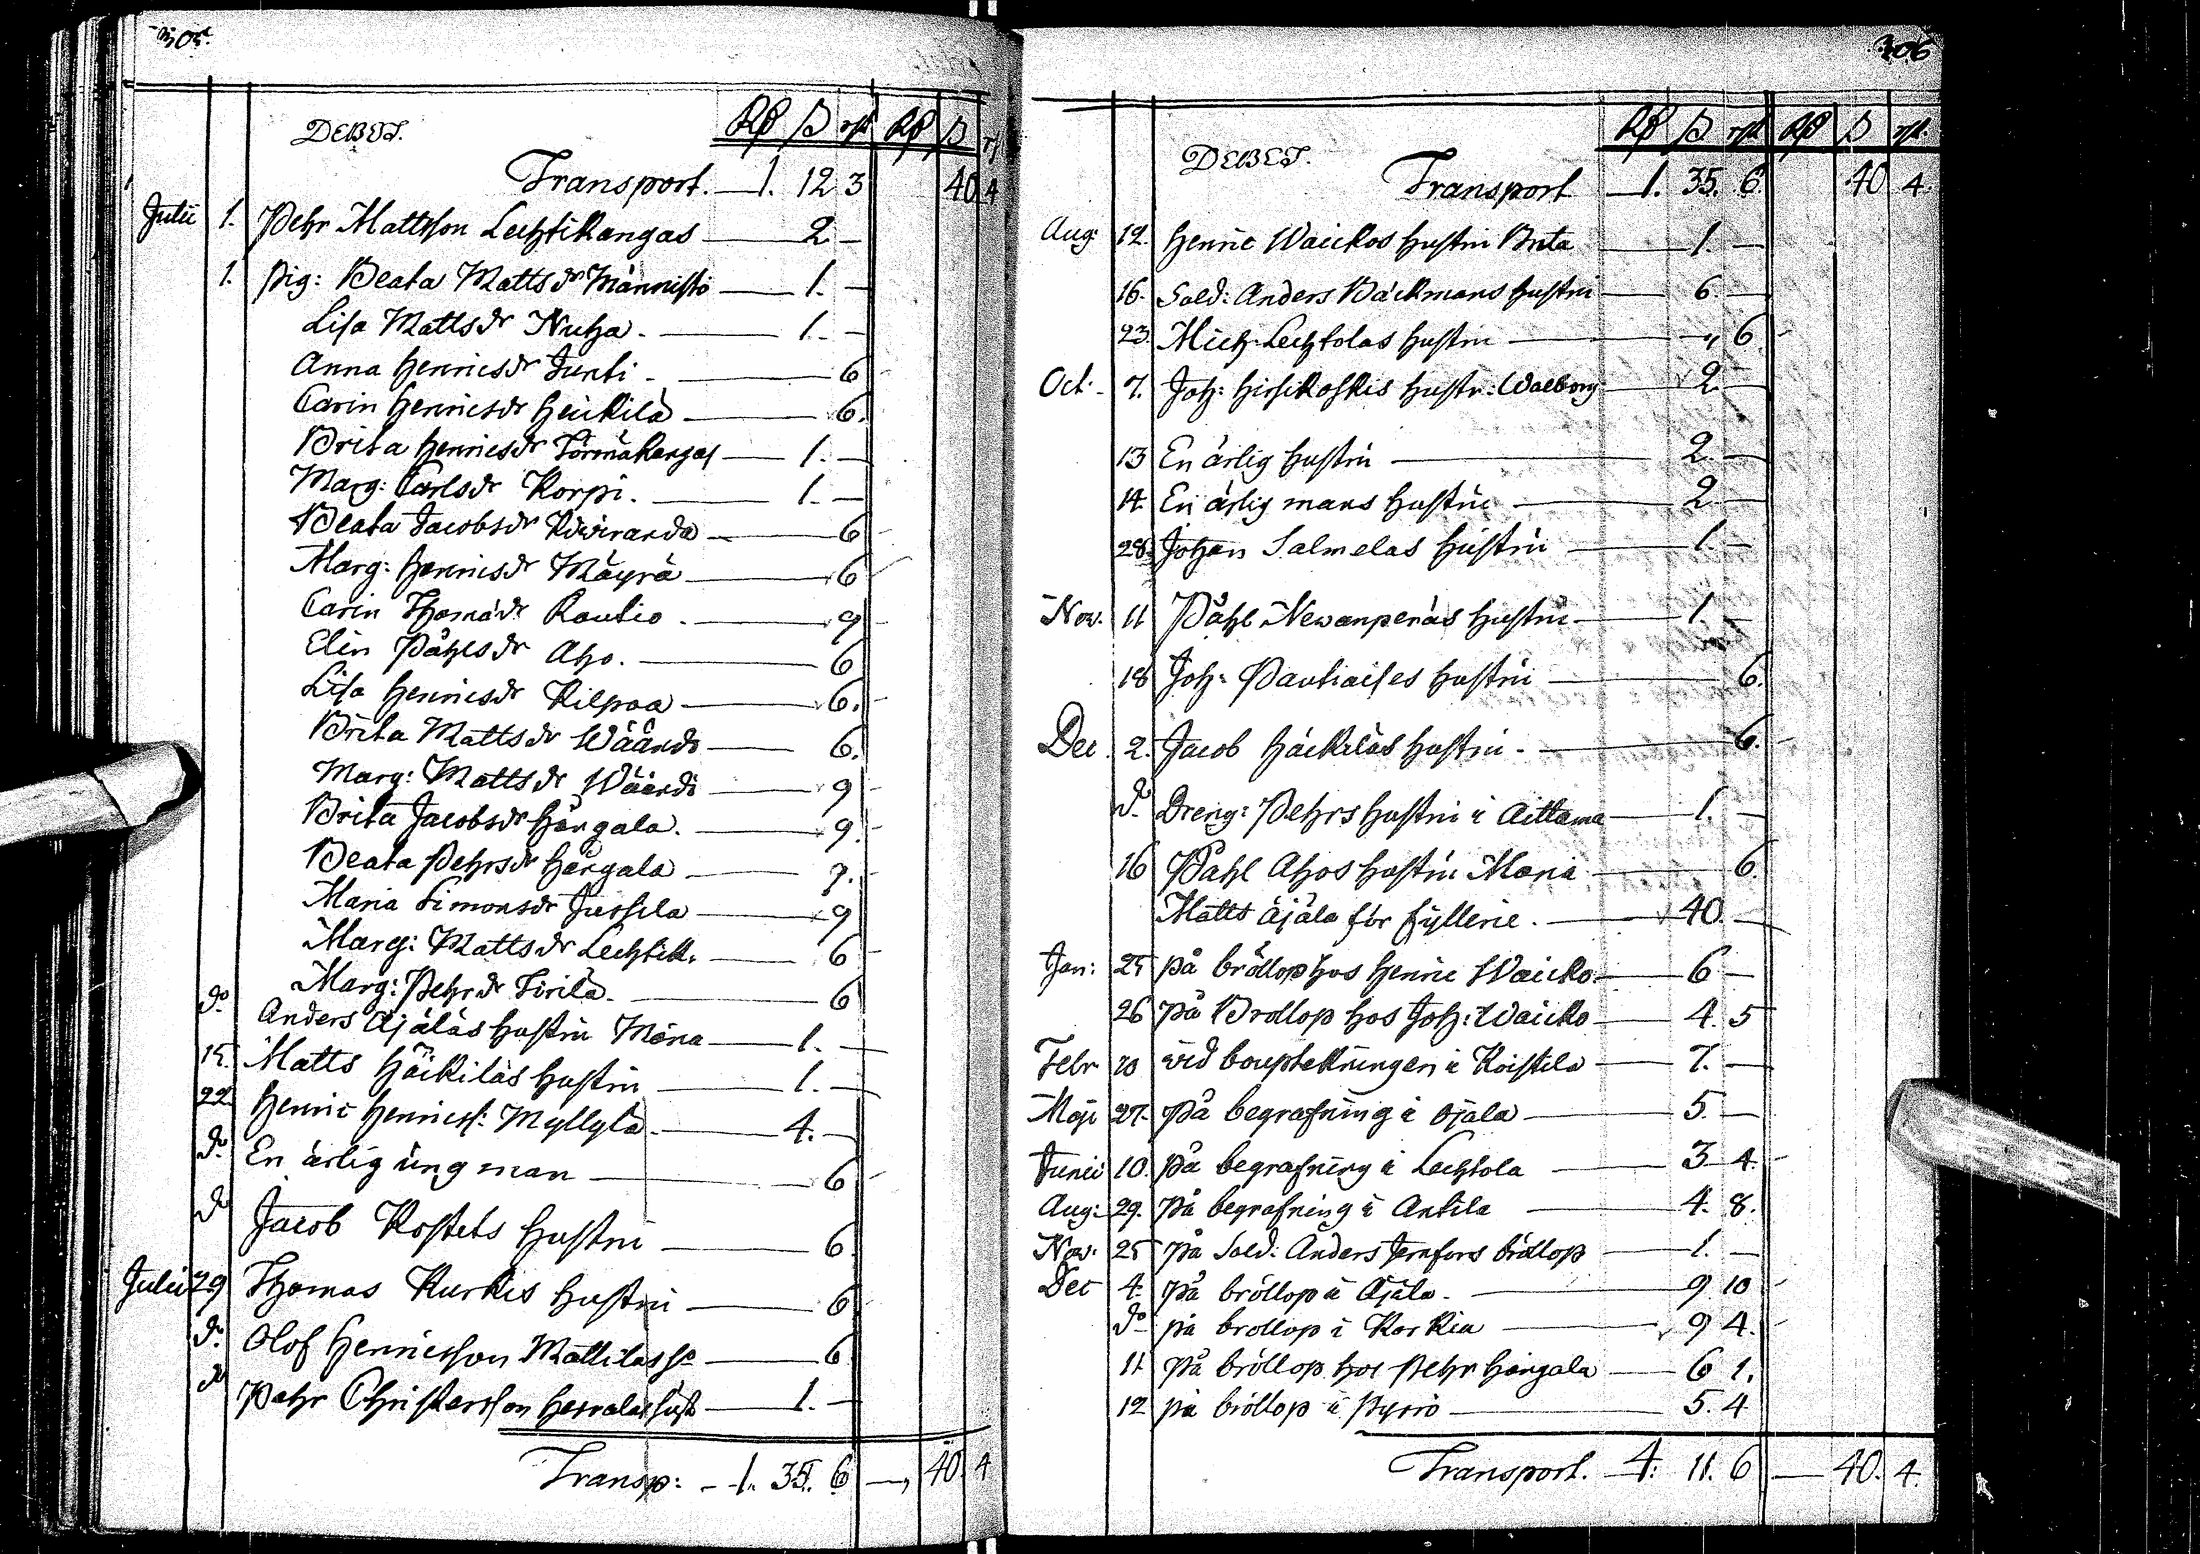 305.
DEBET.
Rd ß rst Rd ß rst
Transport. 1. 12 3 40 4
Julii 1. Pehr Mattsson Lechtikangas 2 —
1. Pig: Beata Mattsdr Männistö 1. —
Lisa Mattsdr Nuha. 1. —
Anna Henricsdr Junti 6
Carin Henricsdr Heickilä 6.
Brita Henricsdr Törmäkangas 1. —
Marg: Carlsdr Korpi. 1. —
Beata Jacobsdr Kiviranda 6
Marg: Henricsdr Mäyrä 6
Carin Thomädr Rautio. 9
Elin Påhlsdr Aho. 6
Lisa Henricsdr Kilpoa 6.
Brita Mattsdr Wäändi 6.
Marg: Mattsdr Wäändi 9
Brita Jacobsdr Hängala. 9.
Beata Pehrsdr Hängala 7.
Maria Simonsdr Jussila 9
Marg: Mattsdr Lechtik. 6
Marg: Pehrsdr Sirilä. 6
do Anders Äjäläs hustru Mäna 1. —
15. Matts Häikiläs hustru 1. —
22. Henric Henricss: Myllylä 4. —
do En ärlig ung man 6
do Jacob Kostets hustru 6.
Julii 29 Thomas Kurkis hustru 6
do Olof Henricsson Mattilas so 6
do Pehr Christersson Herralas hust 1. —
Transp: 1. 35. 6 — 40. 4
306
DEBET.
Rd ß rst Rd ß rst.
Transport 1. 35. 6 40 4.
Aug: 12. Henric Waickos hustru Brita 1. —
16. Sold: Anders Bäckmans hustru 6. —
23. Mich: Lechtolas hustru „ 6
Oct. 7. Joh: Hirsikoskis hustr: Walborg 2 —
13 En ärlig hustru 2. —
14. En ärlig mans hustru 2 —
28. Johan Salmelas hustru 1. —
Nov. 11 Påhl Newanperäs hustru 1. —
18 Joh: Pautiaises hustru 6.
Dec. 2. Jacob Häickiläs hustru 6.
do Dreng: Pehrs hustru i Aittama 1. —
16 Påhl Ahos hustru Maria 6.
Matts Äjäla för fyllerie. 40. —
Jan: 25 på bröllop hos Henric Waicko 6 —
26 på Brollop hos Joh: Waicko 4. 5
Febr 20 vid bouptekningen i Koistila 7. —
Maji 27. på begrafning i Ojala 5. —
Junii 10. på begrafning i Lechtola 3 4.
Aug: 29. på begrafning i Antila 4. 8.
Nov. 25 på Sold: Anders Jernfors bröllop 1. —
Dec 4. på bröllop i Äjäla. 9 10
do på brollop i Korkia 9 4.
11 på bröllop hos Pehr Hängala 6 1.
12 på bröllop i Pyriö 5. 4
Transport. 4: 11. 6 — 40. 4.